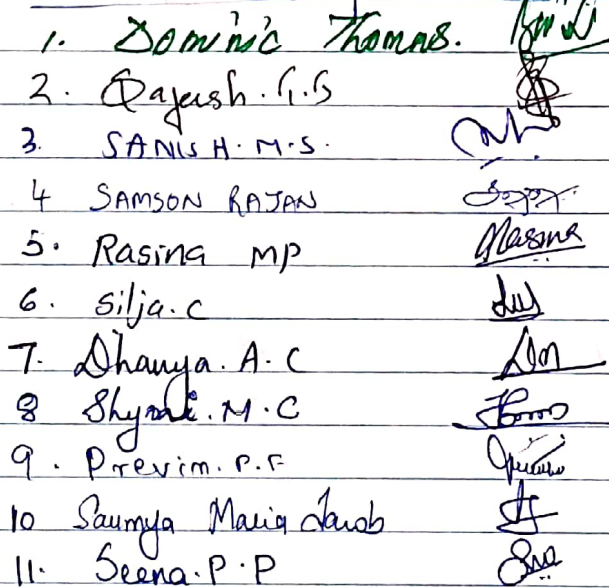 1. Dominic Thomas.
2. Rajesh. G.S
3. SANISH. M.S.
4 SAMSON RAJAN
5. Rasina MP Rasina
6. Silja. C
7. Dhanya. A. C
8 Shymi. M. C
9. Previm. P. F
10 Saumya Maria Jacob
11. Seena. P. P